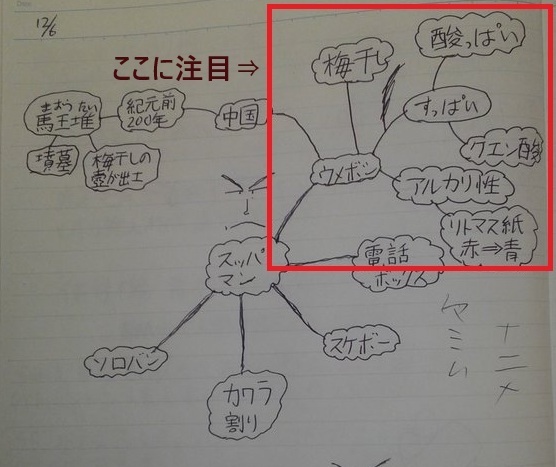 12/6
ここに注目⇒
梅干し
酸っぱい
すっぱい
クエン酸
ウメボシ
アルカリ性
リトマス紙
赤⇒青
中国
紀元前
200年
まおうたい
馬王堆
墳墓
梅干しの
壺が出土
スッパ
マン
電話
ボックス
スケボー
カワラ
割り
ソロバン